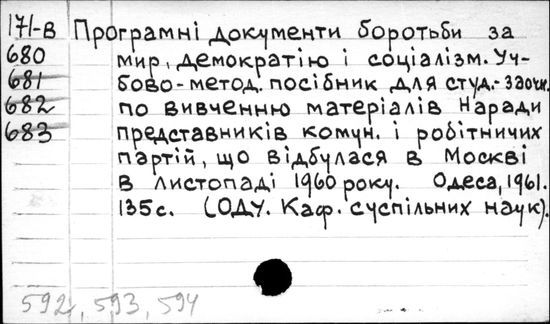 171-в Програмні документи боротьби за
680 мир, демократію і соціалізм. Уч-
681 бово-метод. посібник для студ.-заочн.
682 по вивченню матеріалів Наради
683 представників комун. і робітничих
партій, що відбулася в Москві
в листопаді 1960 року. Одеса, 1961.
135с. (ОДУ. Каф. суспільних наук).
592, 593, 594